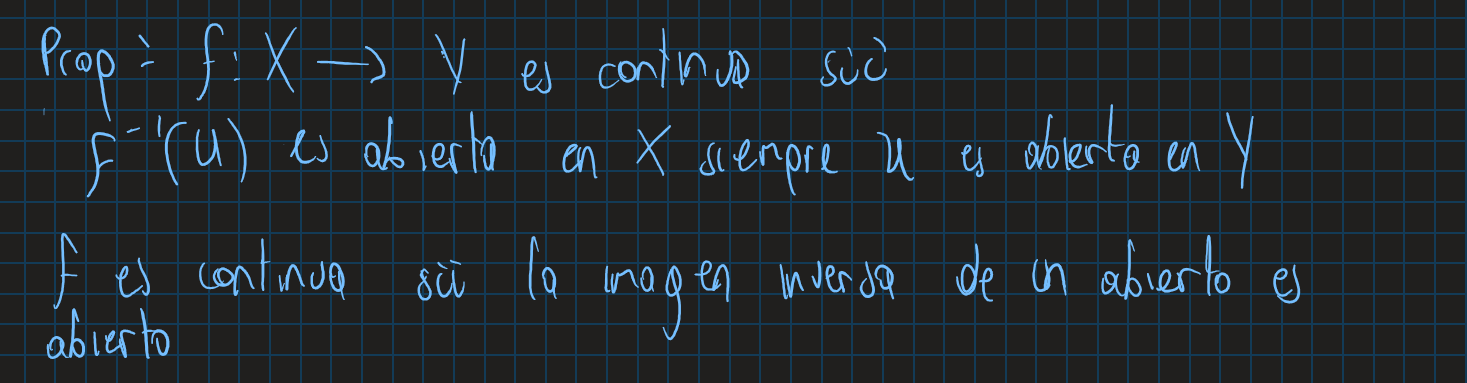 Prop: f: X → Y es continua sii
f⁻¹(U) es abierta en X siempre U es abierto en Y
f es continua sii la imagen inversa de un abierto es
abierto